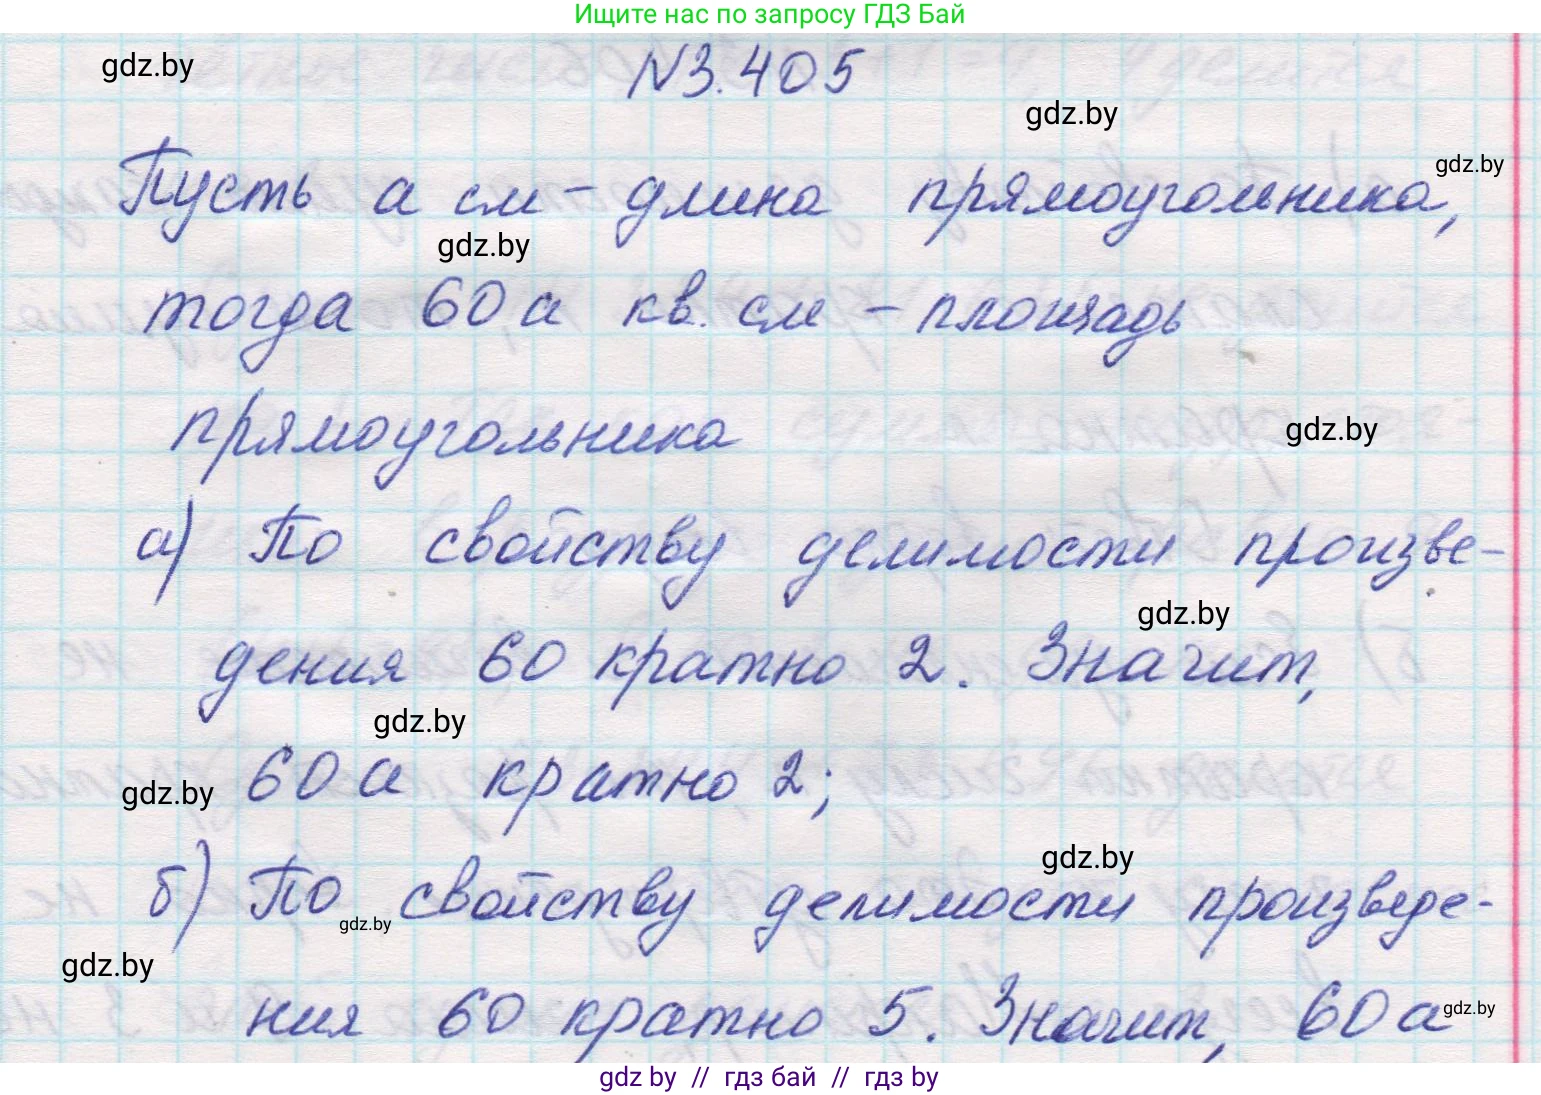 Ищите нас по запросу ГДЗ Бай
gdz.by
N3.405
gdz.by
gdz.by
Пусть а см - длина прямоугольника,
gdz.by
тогда 60 а кв. см - площадь
прямоугольника
gdz.by
а) По свойству делимости произве-
gdz.by
дения 60 кратно 2. Значит,
gdz.by
60 а кратно 2;
gdz.by
gdz.by
б) По свойству делимости произведе-
gdz.by
gdz.by
ния 60 кратно 5. Значит, 60 а
gdz.by
gdz by // гдз бай // гдз by